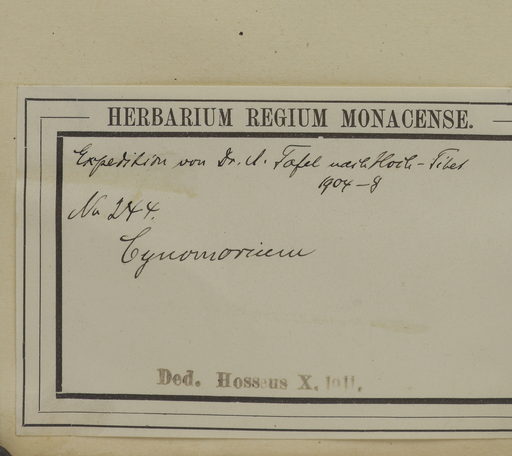 HERBARIUM REGIUM MONACENSE.
Expedition von Dr. A. Tafel nach Hoch-Tibet
1904-8
No 244.
Cynomorium
Ded. Hosseus X. 1911.